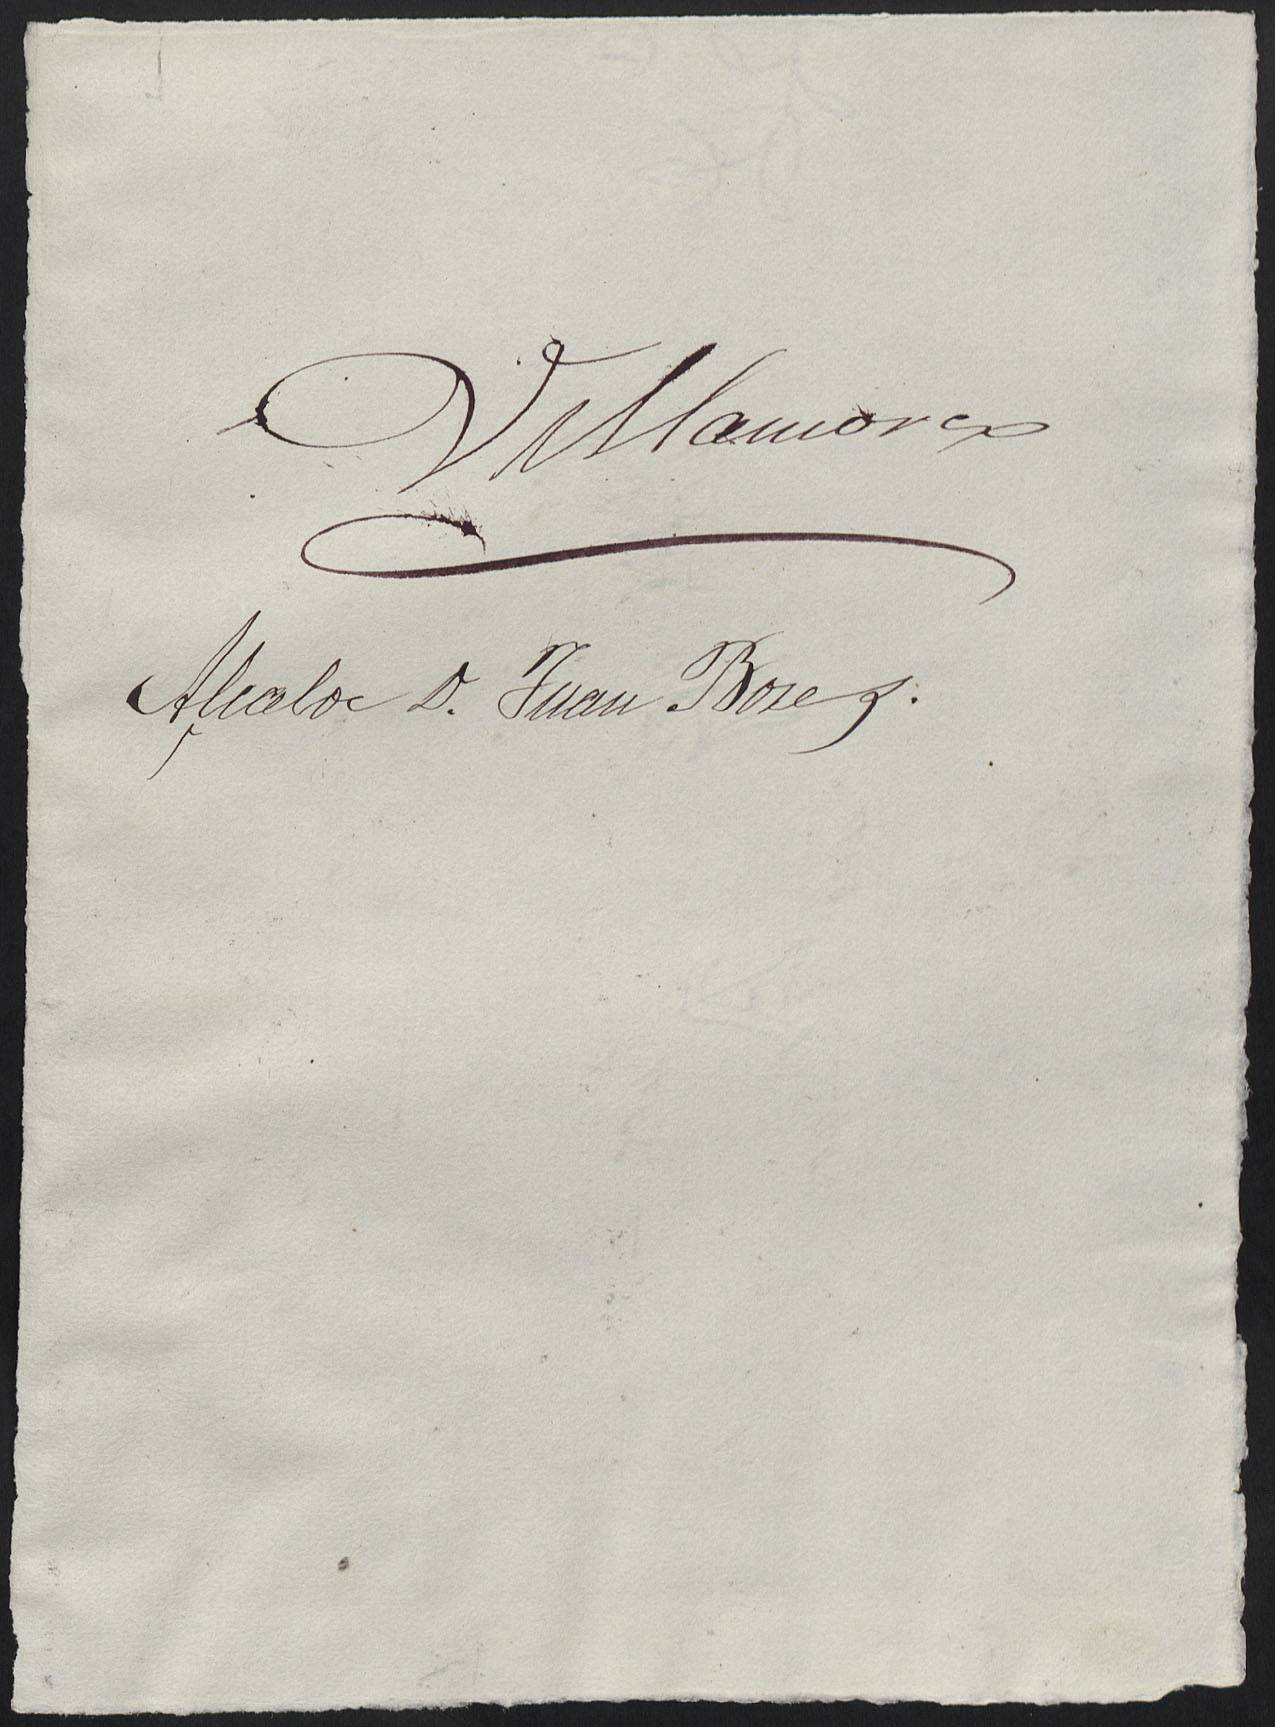 Villamorex
Alcalde D. Juan Borez.